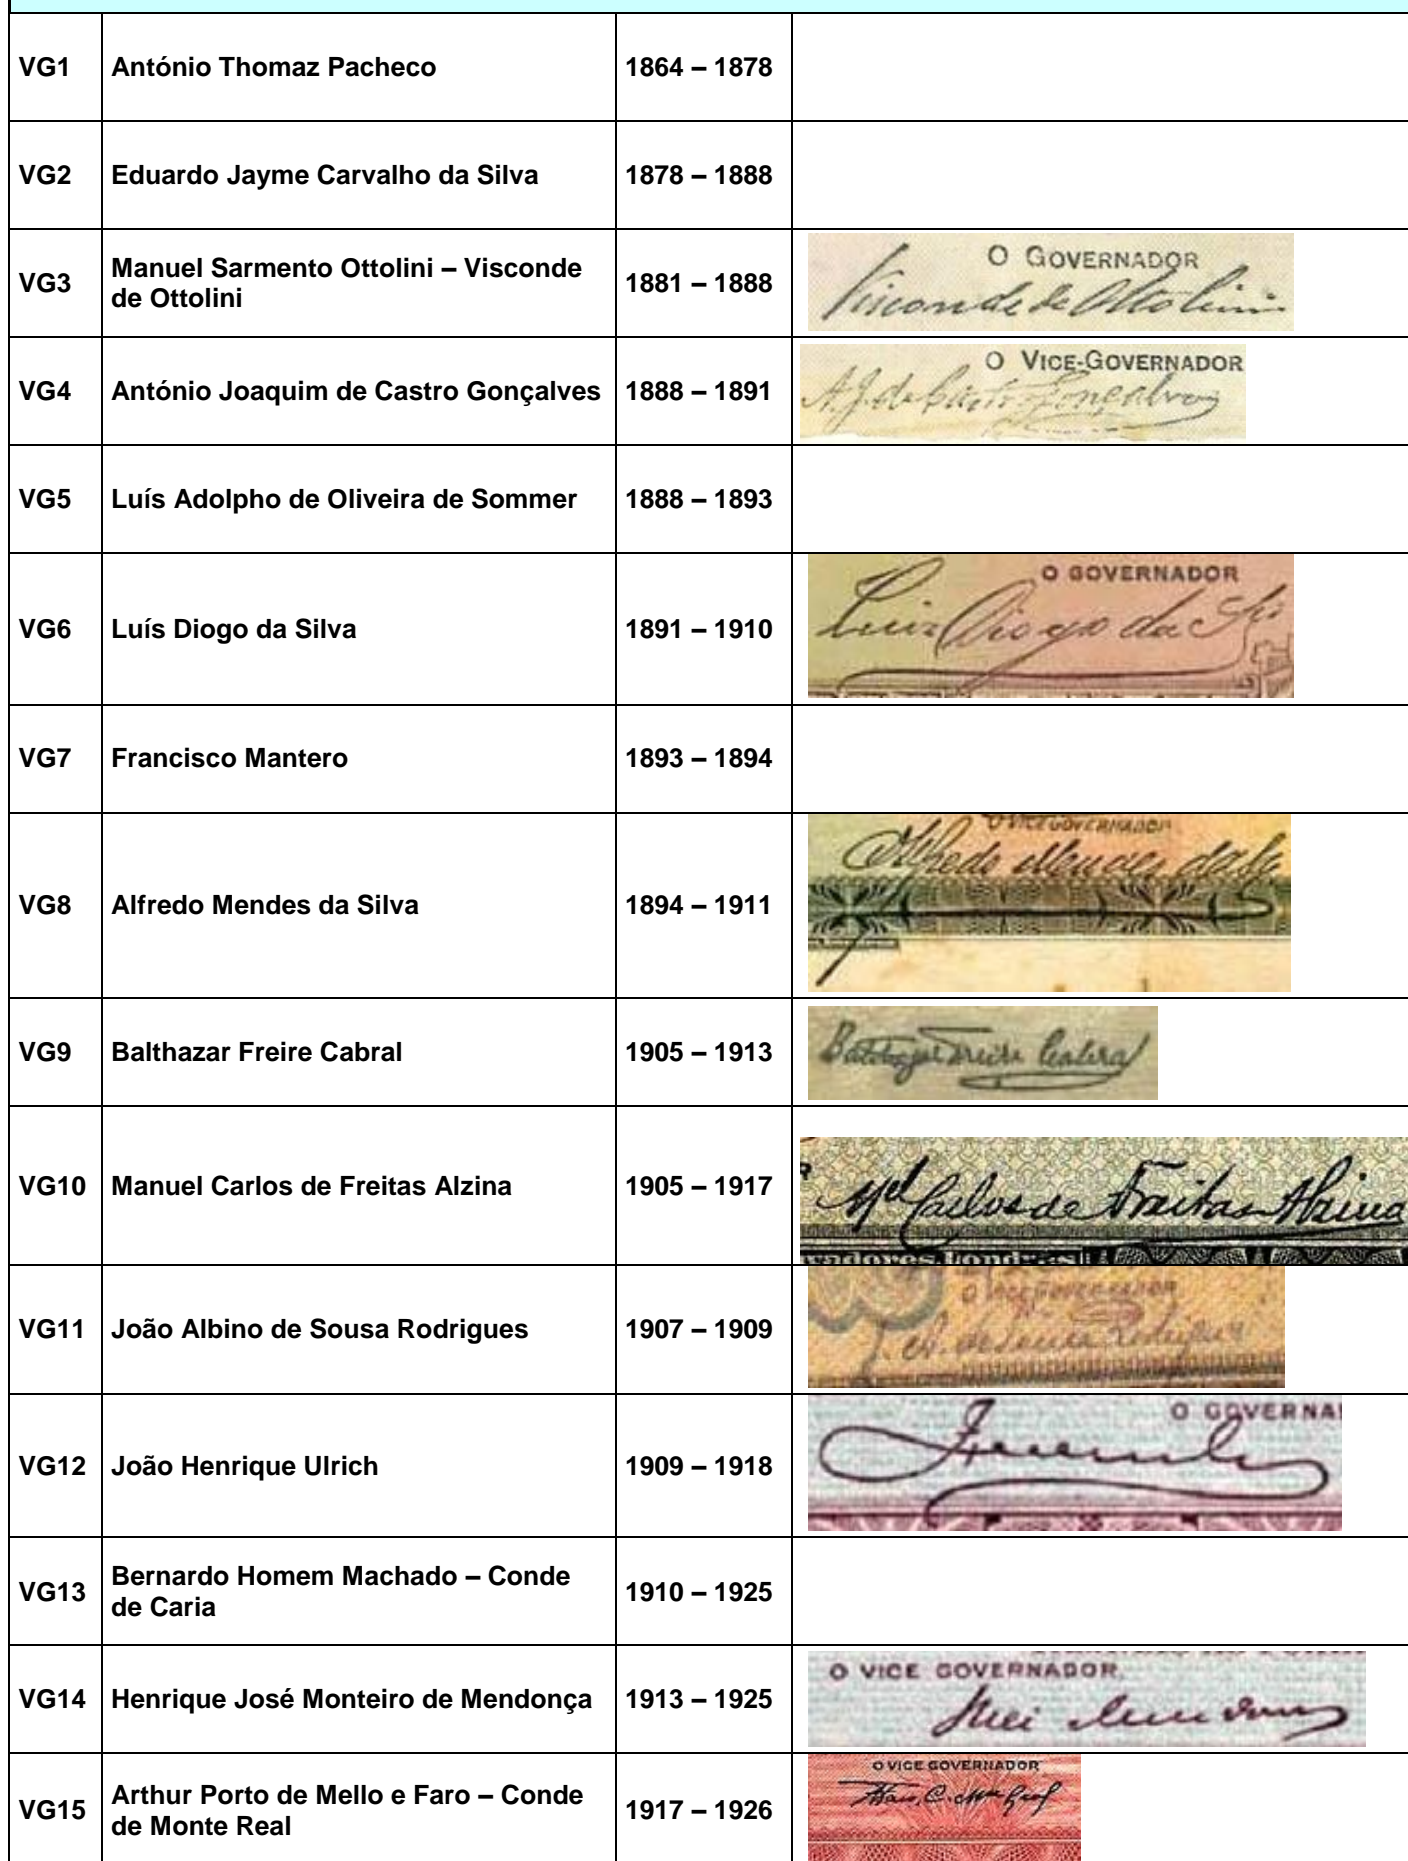 VG1 António Thomaz Pacheco 1864 – 1878
VG2 Eduardo Jayme Carvalho da Silva 1878 – 1888
VG3 Manuel Sarmento Ottolini – Visconde de Ottolini 1881 – 1888
O GOVERNADOR
Visconde de Ottolini
VG4 António Joaquim de Castro Gonçalves 1888 – 1891
O VICE-GOVERNADOR
A. J. de Castro Gonçalves
VG5 Luís Adolpho de Oliveira de Sommer 1888 – 1893
VG6 Luís Diogo da Silva 1891 – 1910
O GOVERNADOR
Luiz Diogo da
VG7 Francisco Mantero 1893 – 1894
VG8 Alfredo Mendes da Silva 1894 – 1911
O VICE GOVERNADOR
Alfredo Mendes da
VG9 Balthazar Freire Cabral 1905 – 1913
Balthazar Freire Cabral
VG10 Manuel Carlos de Freitas Alzina 1905 – 1917
Mel Carlos de Freitas Alzina
Londres
VG11 João Albino de Sousa Rodrigues 1907 – 1909
O VICE GOVERNADOR
J. A. de Sousa Rodrigues
VG12 João Henrique Ulrich 1909 – 1918
O GOVERNA
VG13 Bernardo Homem Machado – Conde de Caria 1910 – 1925
VG14 Henrique José Monteiro de Mendonça 1913 – 1925
O VICE GOVERNADOR
VG15 Arthur Porto de Mello e Faro – Conde de Monte Real 1917 – 1926
O VICE GOVERNADOR